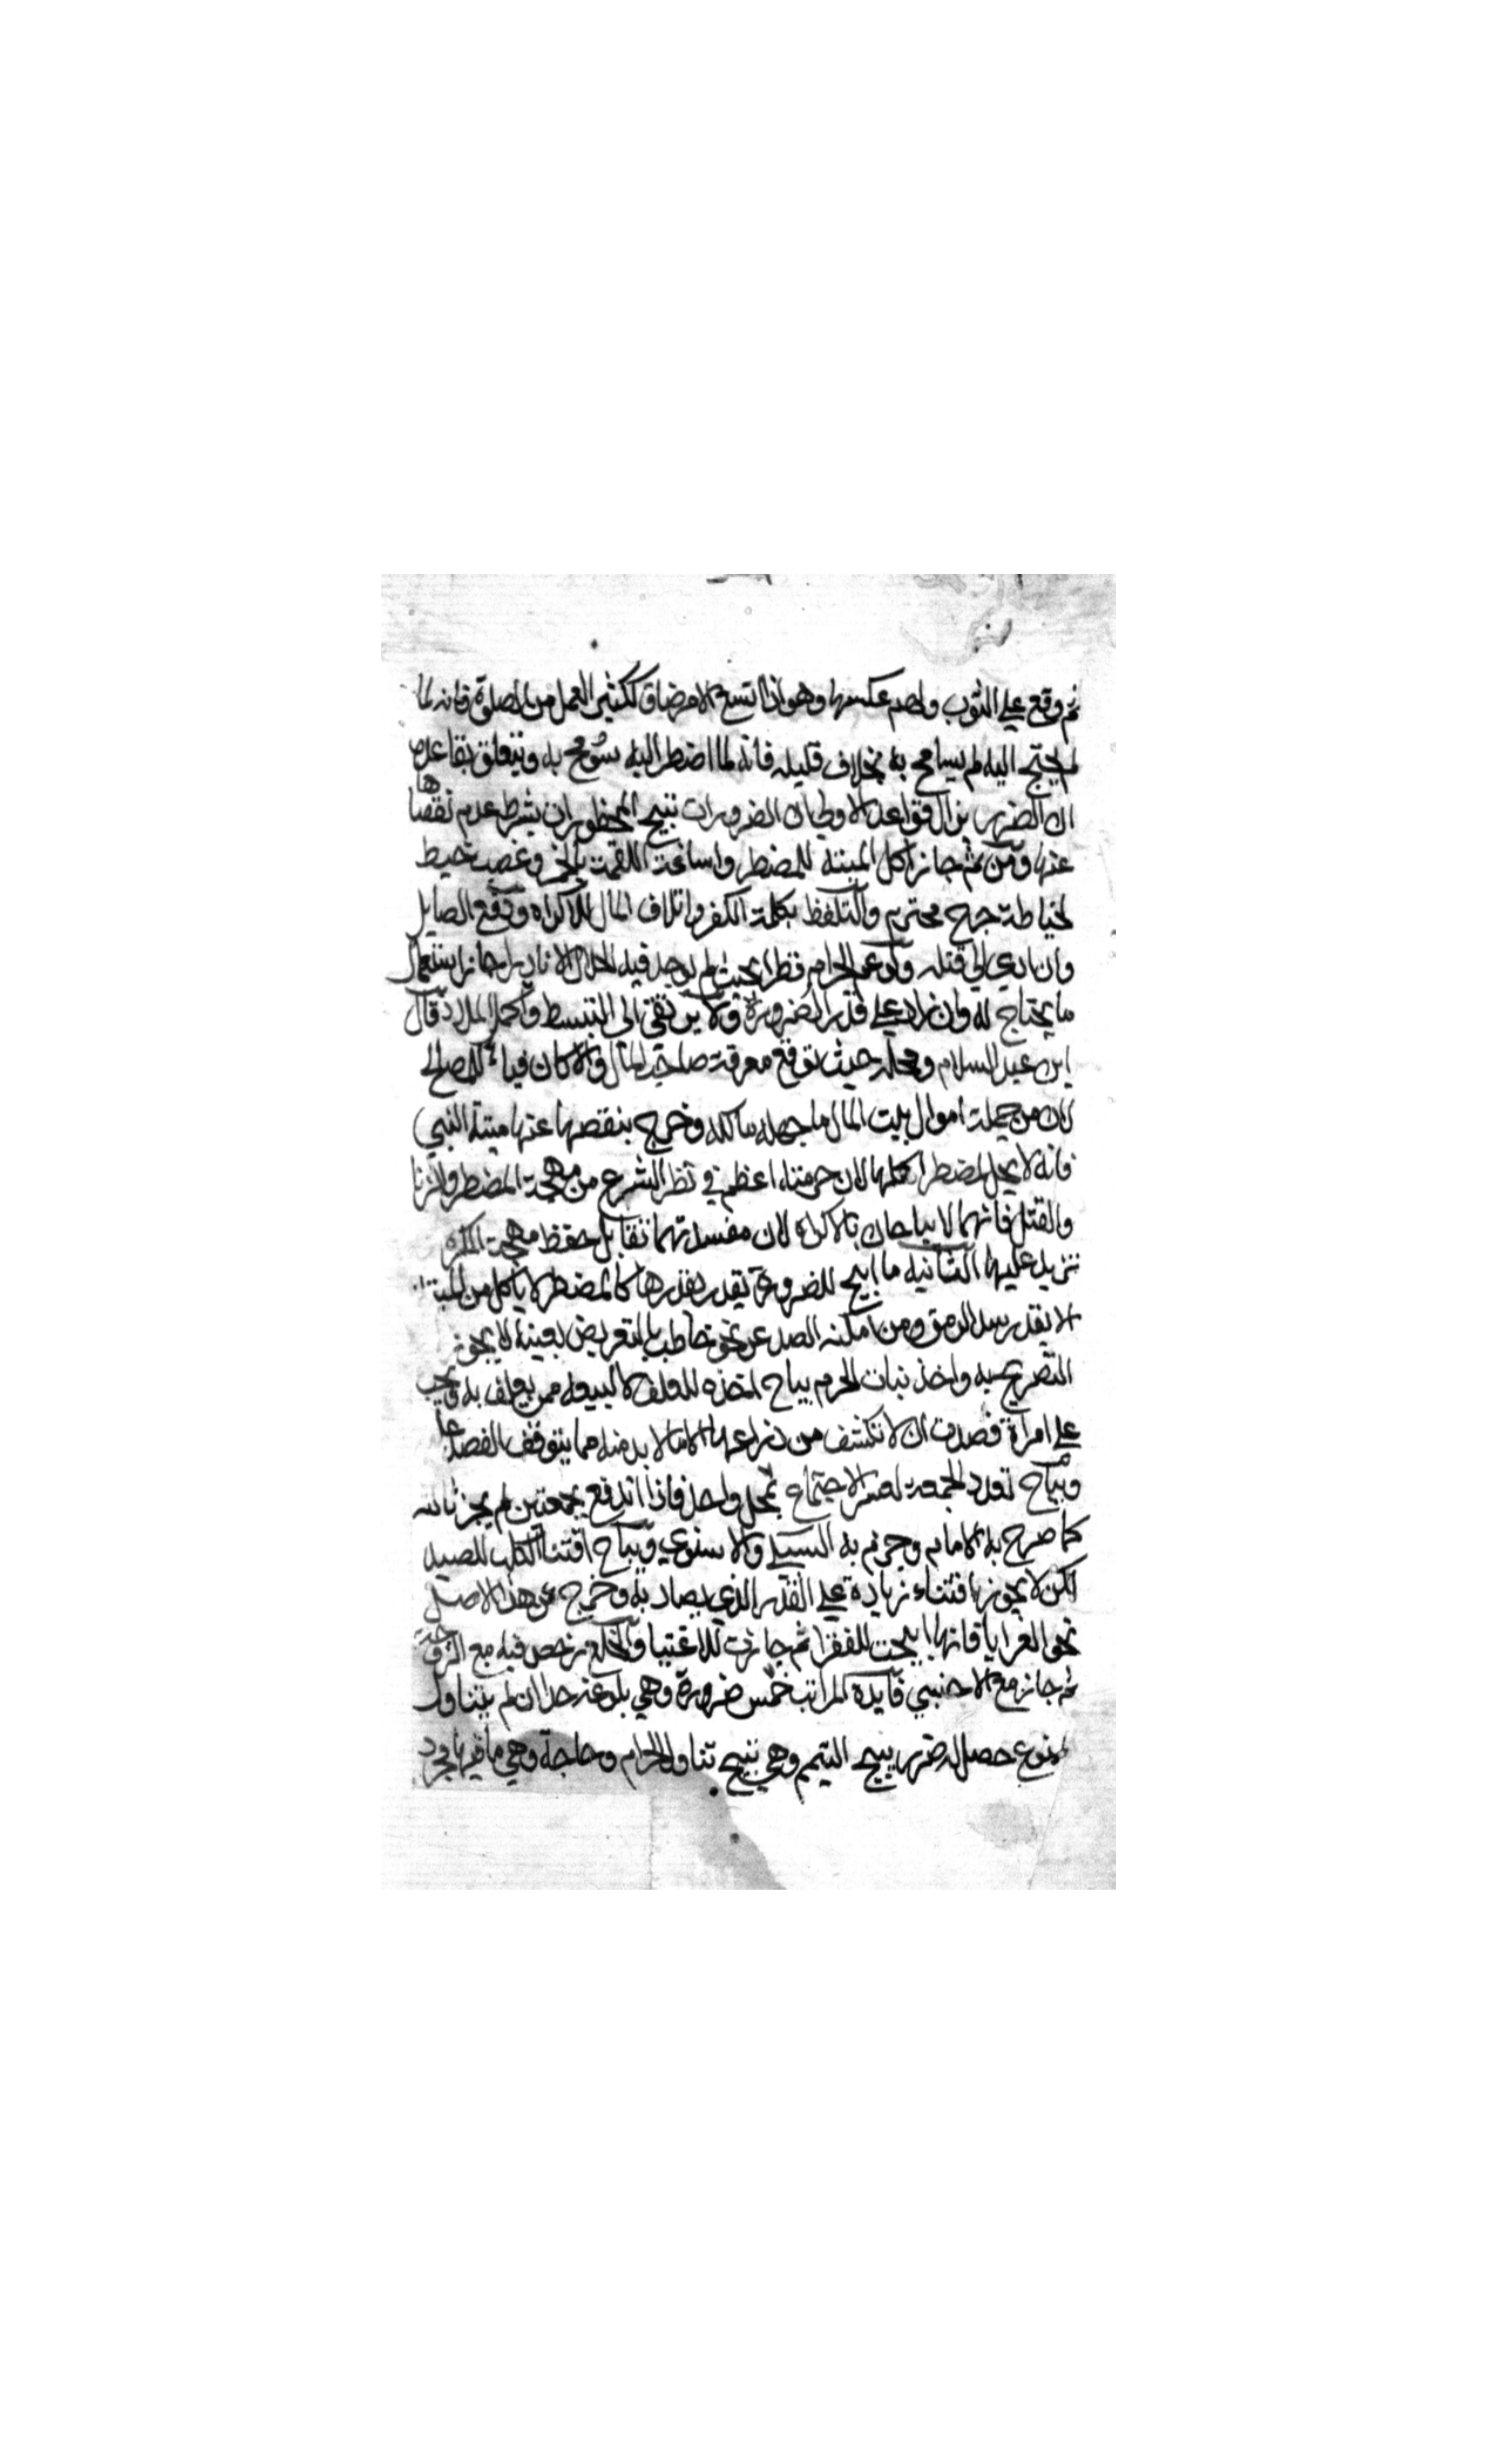 ثم وقع علي الثوب ولهم عكسها وهو اذا اتسع الامر ضاق ككثير العمل من الصلوة فانه لما
لم يحتج اليه لم يسامح به بخلاف قليله فانه لما اضطر اليه سومح به ويتعلق بقاعدة
ان الضرر يزال قواعد الاولي ان الضرورات تبيح المحظورات بشرط عدم نقصا
ها
عنها ومن ثم جاز اكل الميتة للمضطر واساغة اللقمة بالخمر وغصب خيط
لخياطة جرح محترم والتلفظ بكلمة الكفر واتلاف المال للاكراه ودفع الصايل
وان ادي الي قتله ولو عم الحرام قطرا بحيث لم يوجد فيه الحلال الا نادرا جاز استعمال
ما يحتاج له وان زاد علي قدر الضرورة ولا يرتقي الي التبسط واكل الملاذ قال
ابن عبد السلام ومحله حيث توقع معرفة صاحب المال والا كان فيا للمصالح
لان من جملة اموال بيت المال ما جهل مالكه وخرج بنقصها عنها ميتة النبي
فانه لا يحل لمضطر اكلها لان حرمته اعظم في نظر الشرع من مهجة المضطر والزنا
والقتل فانهما لا يباحان بالاكراه لان مفسدتهما تقابل حفظ مهجة المكره
تزيد عليها الثانية ما ابيح للضرورة يقدر بقدرها كالمضطر لا ياكل من الميتة
الا بقدر سد الرمق ومن امكنه الصد عن نحو خاطب بالتعريض بعينه لا يجوز
التصريح به واخذ نبات الحرم يباح اخذه للعلف لا لبيعه ممن يعلف به ويجب
علي امراة فصدت ان لا تكشف من ذراعها الا ما لا بد منه مما يتوقف الفصد
عليه
ويباح تعدد الجمعة لعسر الاجتماع بمحل واحد فاذا اندفع بجمعتين لم يجز ثالثة
كما صرح به الامام وجزم به السبكي والاسنوي ويباح اقتنا الكلب للصيد
لكن لا يجوز اقتناء زيادة علي القدر الذي يصاد به وخرج عن هذا الاصل
نحو العرايا فانها ابيحت للفقرا ثم جازت للاغنيا والخلع رخص فيه مع الزوجة
ثم جاز مع الاجنبي فايدة المراتب خمس ضرورة وهي بلوغه حدا ان لم يتناول
الممنوع حصل له ضرر يبيح التيمم وهي تبيح تناول الحرام وحاجة وهي ما فيها مجرد